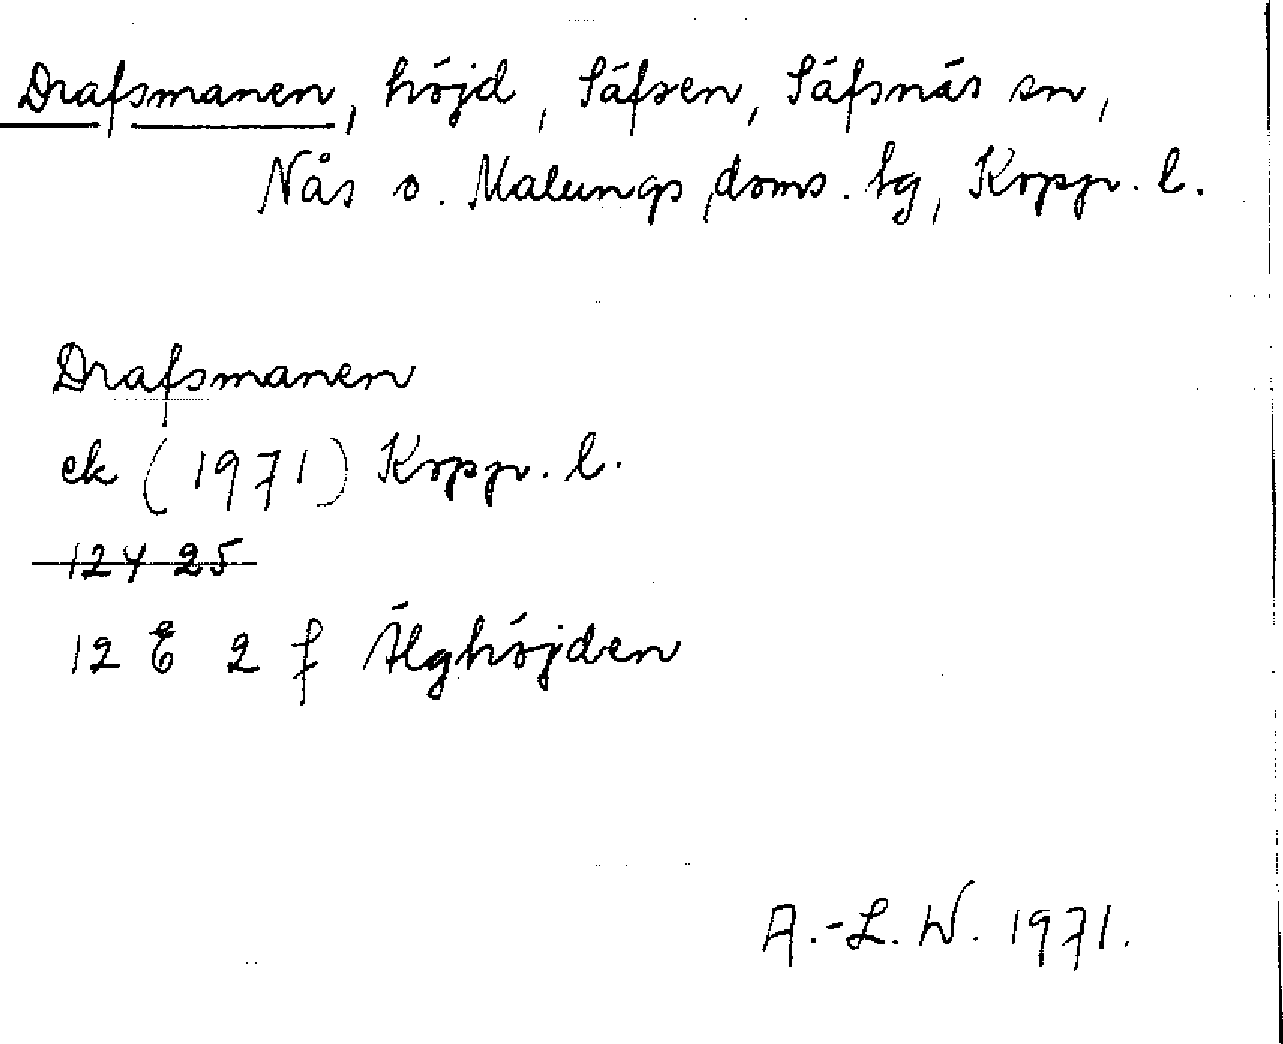 Drafsmanen, höjd, Säfsen, Säfsnäs sn,
Nås o. Malungs doms. tg, Kopp. l.
Drafsmanen
ek (1971) Kopp. l.
12 Y 25
12 E 2 f Älghöjden
A.-L. W. 1971.